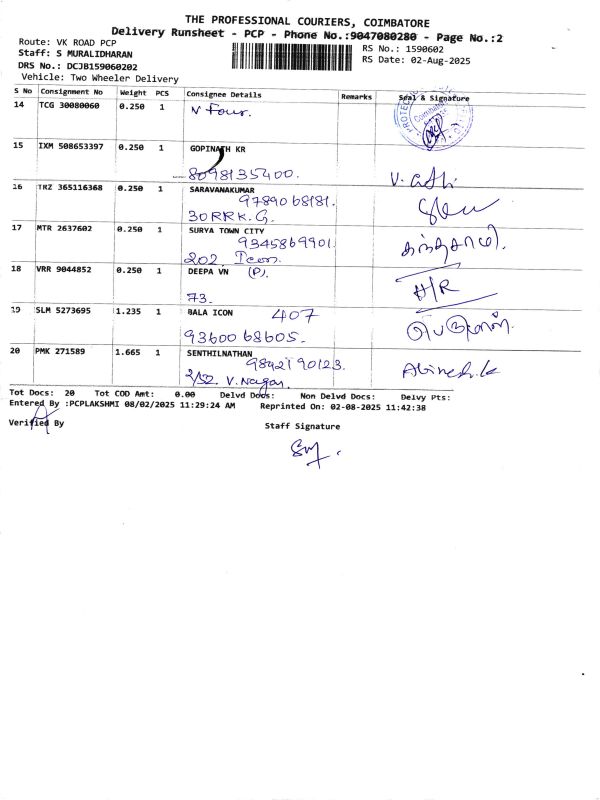 THE PROFESSIONAL COURIERS, COIMBATORE
Delivery Runsheet - PCP - Phone No.:9047080280 - Page No.:2
Route: VK ROAD PCP
RS No.: 1590602
Staff: S MURALIDHARAN
RS Date: 02-Aug-2025
DRS No.: DCJB159060202
Vehicle: Two Wheeler Delivery
S No Consignment No Weight PCS Consignee Details Remarks Seal & Signature
14 TCG 30080060 0.250 1 N Four.
15 IXM 508653397 0.250 1 GOPINATH KR
8098135400.
16 TRZ 365116368 0.250 1 SARAVANAKUMAR
9789068181.
30 RRK. G.
17 MTR 2637602 0.250 1 SURYA TOWN CITY
9345869901.
202. Icon.
18 VRR 9044852 0.250 1 DEEPA VN (P).
73. H/R
19 SLM 5273695 1.235 1 BALA ICON 407
9360068605.
20 PMK 271589 1.665 1 SENTHILNATHAN
9842190123. Abinesh.k
2/52. V. Nagar.
Tot Docs: 20 Tot COD Amt: 0.00 Delvd Docs: Non Delvd Docs: Delvy Pts:
Entered By :PCPLAKSHMI 08/02/2025 11:29:24 AM Reprinted On: 02-08-2025 11:42:38
Verified By
Staff Signature